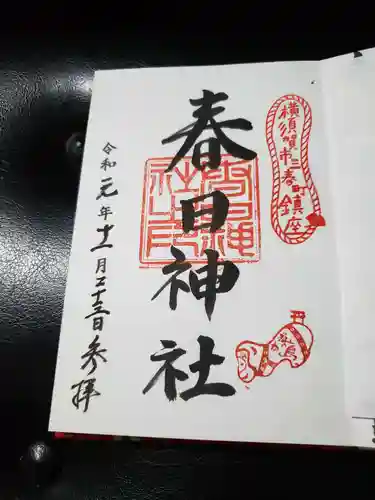 横須賀市三春町鎮座
春日神社
令和元年十一月二十三日参拝